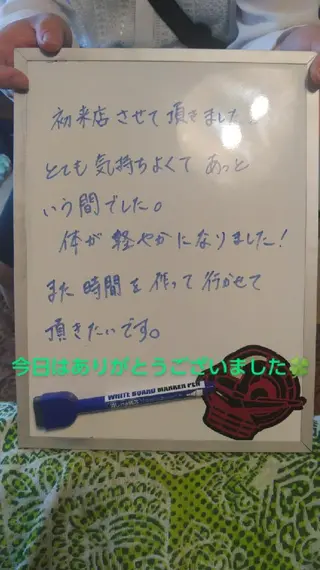 初来店させて頂きました。
とても気持ちよくてあっと
いう間でした。
体が軽やかになりました!
また時間を作って行かせて
頂きたいです。
今日はありがとうございました🍀
WHITE BOARD MARKER PEN